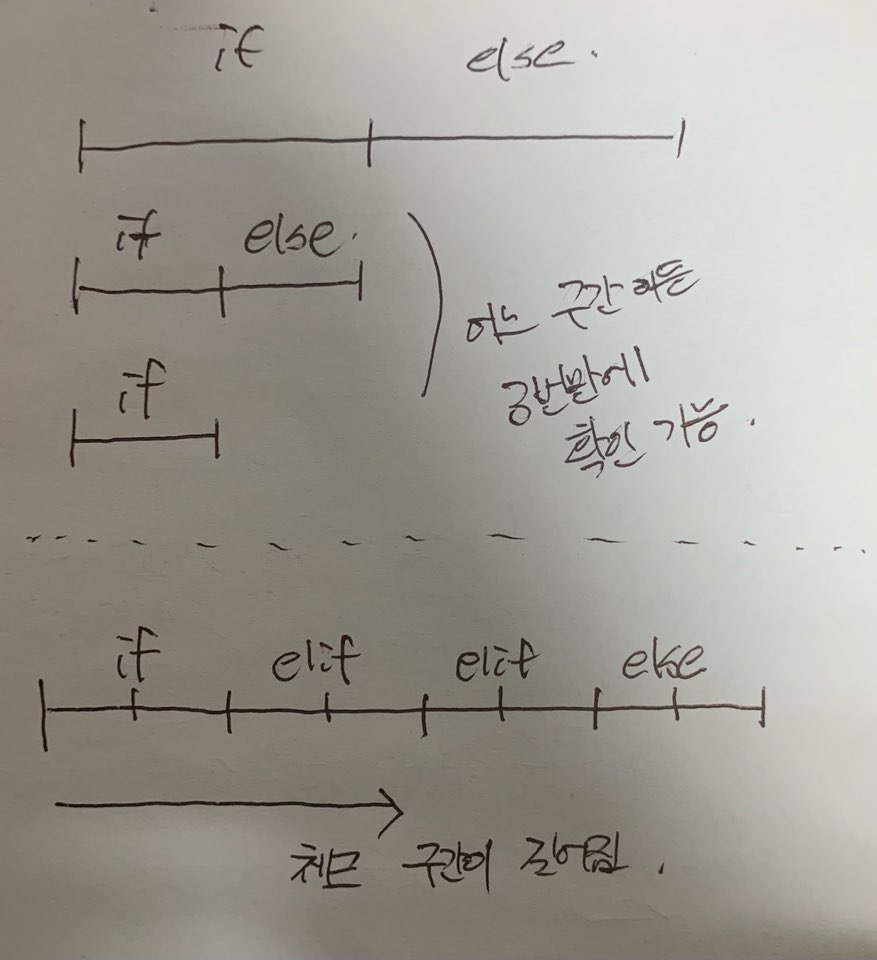 if else.
if else.
어느 구간이든
3번만에
확인 가능.
if
if elif elif else
체크 구간이 길어짐.